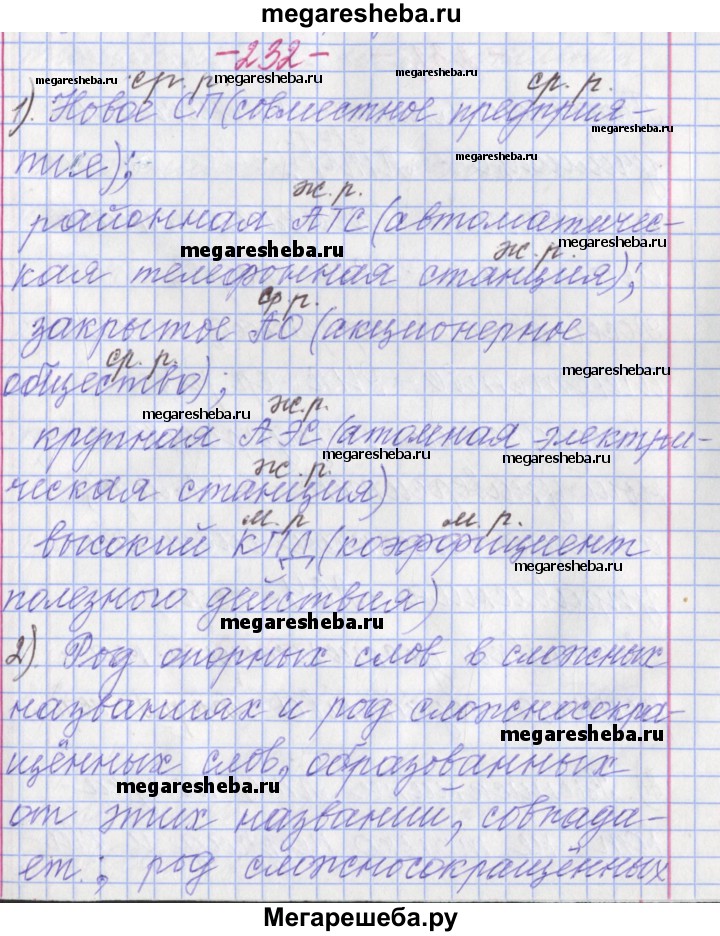 megaresheba.ru
-232-
megaresheba.ru ср. р. megaresheba.ru ср. р. megaresheba.ru
1). Новое СП (совместное предприя-
megaresheba.ru
тие);
ж. р.
районная АТС (автоматичес-
megaresheba.ru megaresheba.ru
ж. р.
кая телефонная станция);
ср р.
закрытое АО (акционерное
ср. р. megaresheba.ru
общество);
megaresheba.ru ж. р.
крупная АЭС (атомная электри-
megaresheba.ru
ж. р.
ческая станция)
м. р м. р.
высокий КПД (коэффициент
megaresheba.ru
полезного действия)
megaresheba.ru
2) Род опорных слов в сложных
названиях и род сложносокра-
megaresheba.ru
щённых слов, образованных
megaresheba.ru
от этих названий, совпада-
ет.; род сложносокращённых
Мегарешеба.ру